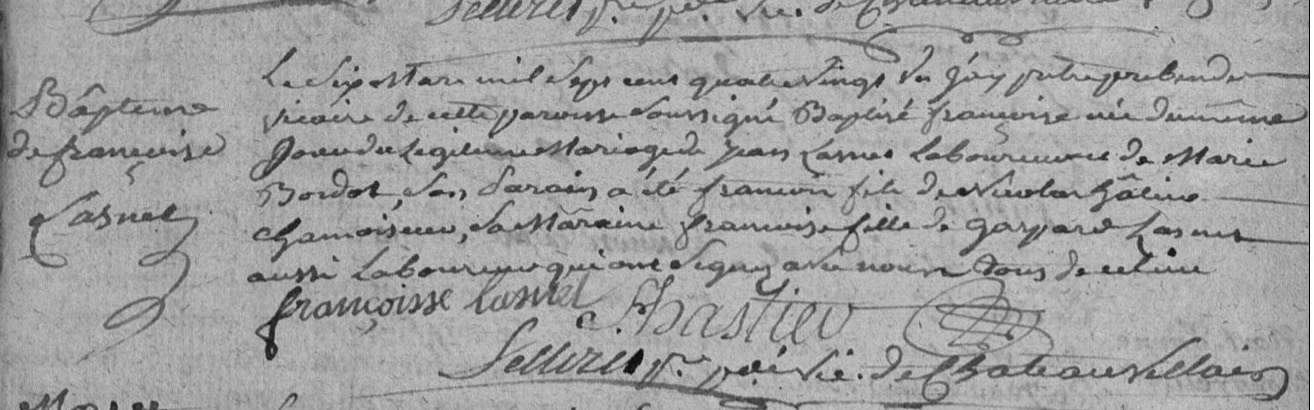 Sellures ptre pbé. vic. de Chateauvillain
Baptême
de françoise
Lasnet
Le Six Mars mil Sept cent quatre Vingt Un j'ay prêtre prebendé
vicaire de cette paroisse Soussigné Baptisé françoise née du même
Jour du Legitime Mariage de jean Lasnet Laboureur et de Marie
Bordot, Son Parain a été francois fils de Nicolas
Chamoiseur, La Maraine francoise fille de Gaspard Lasnet
aussi Laboureur qui ont Signez avec nous tous de ce lieu
françoisse lasnet
Sellures ptre pbé vic. de Chateauvillain